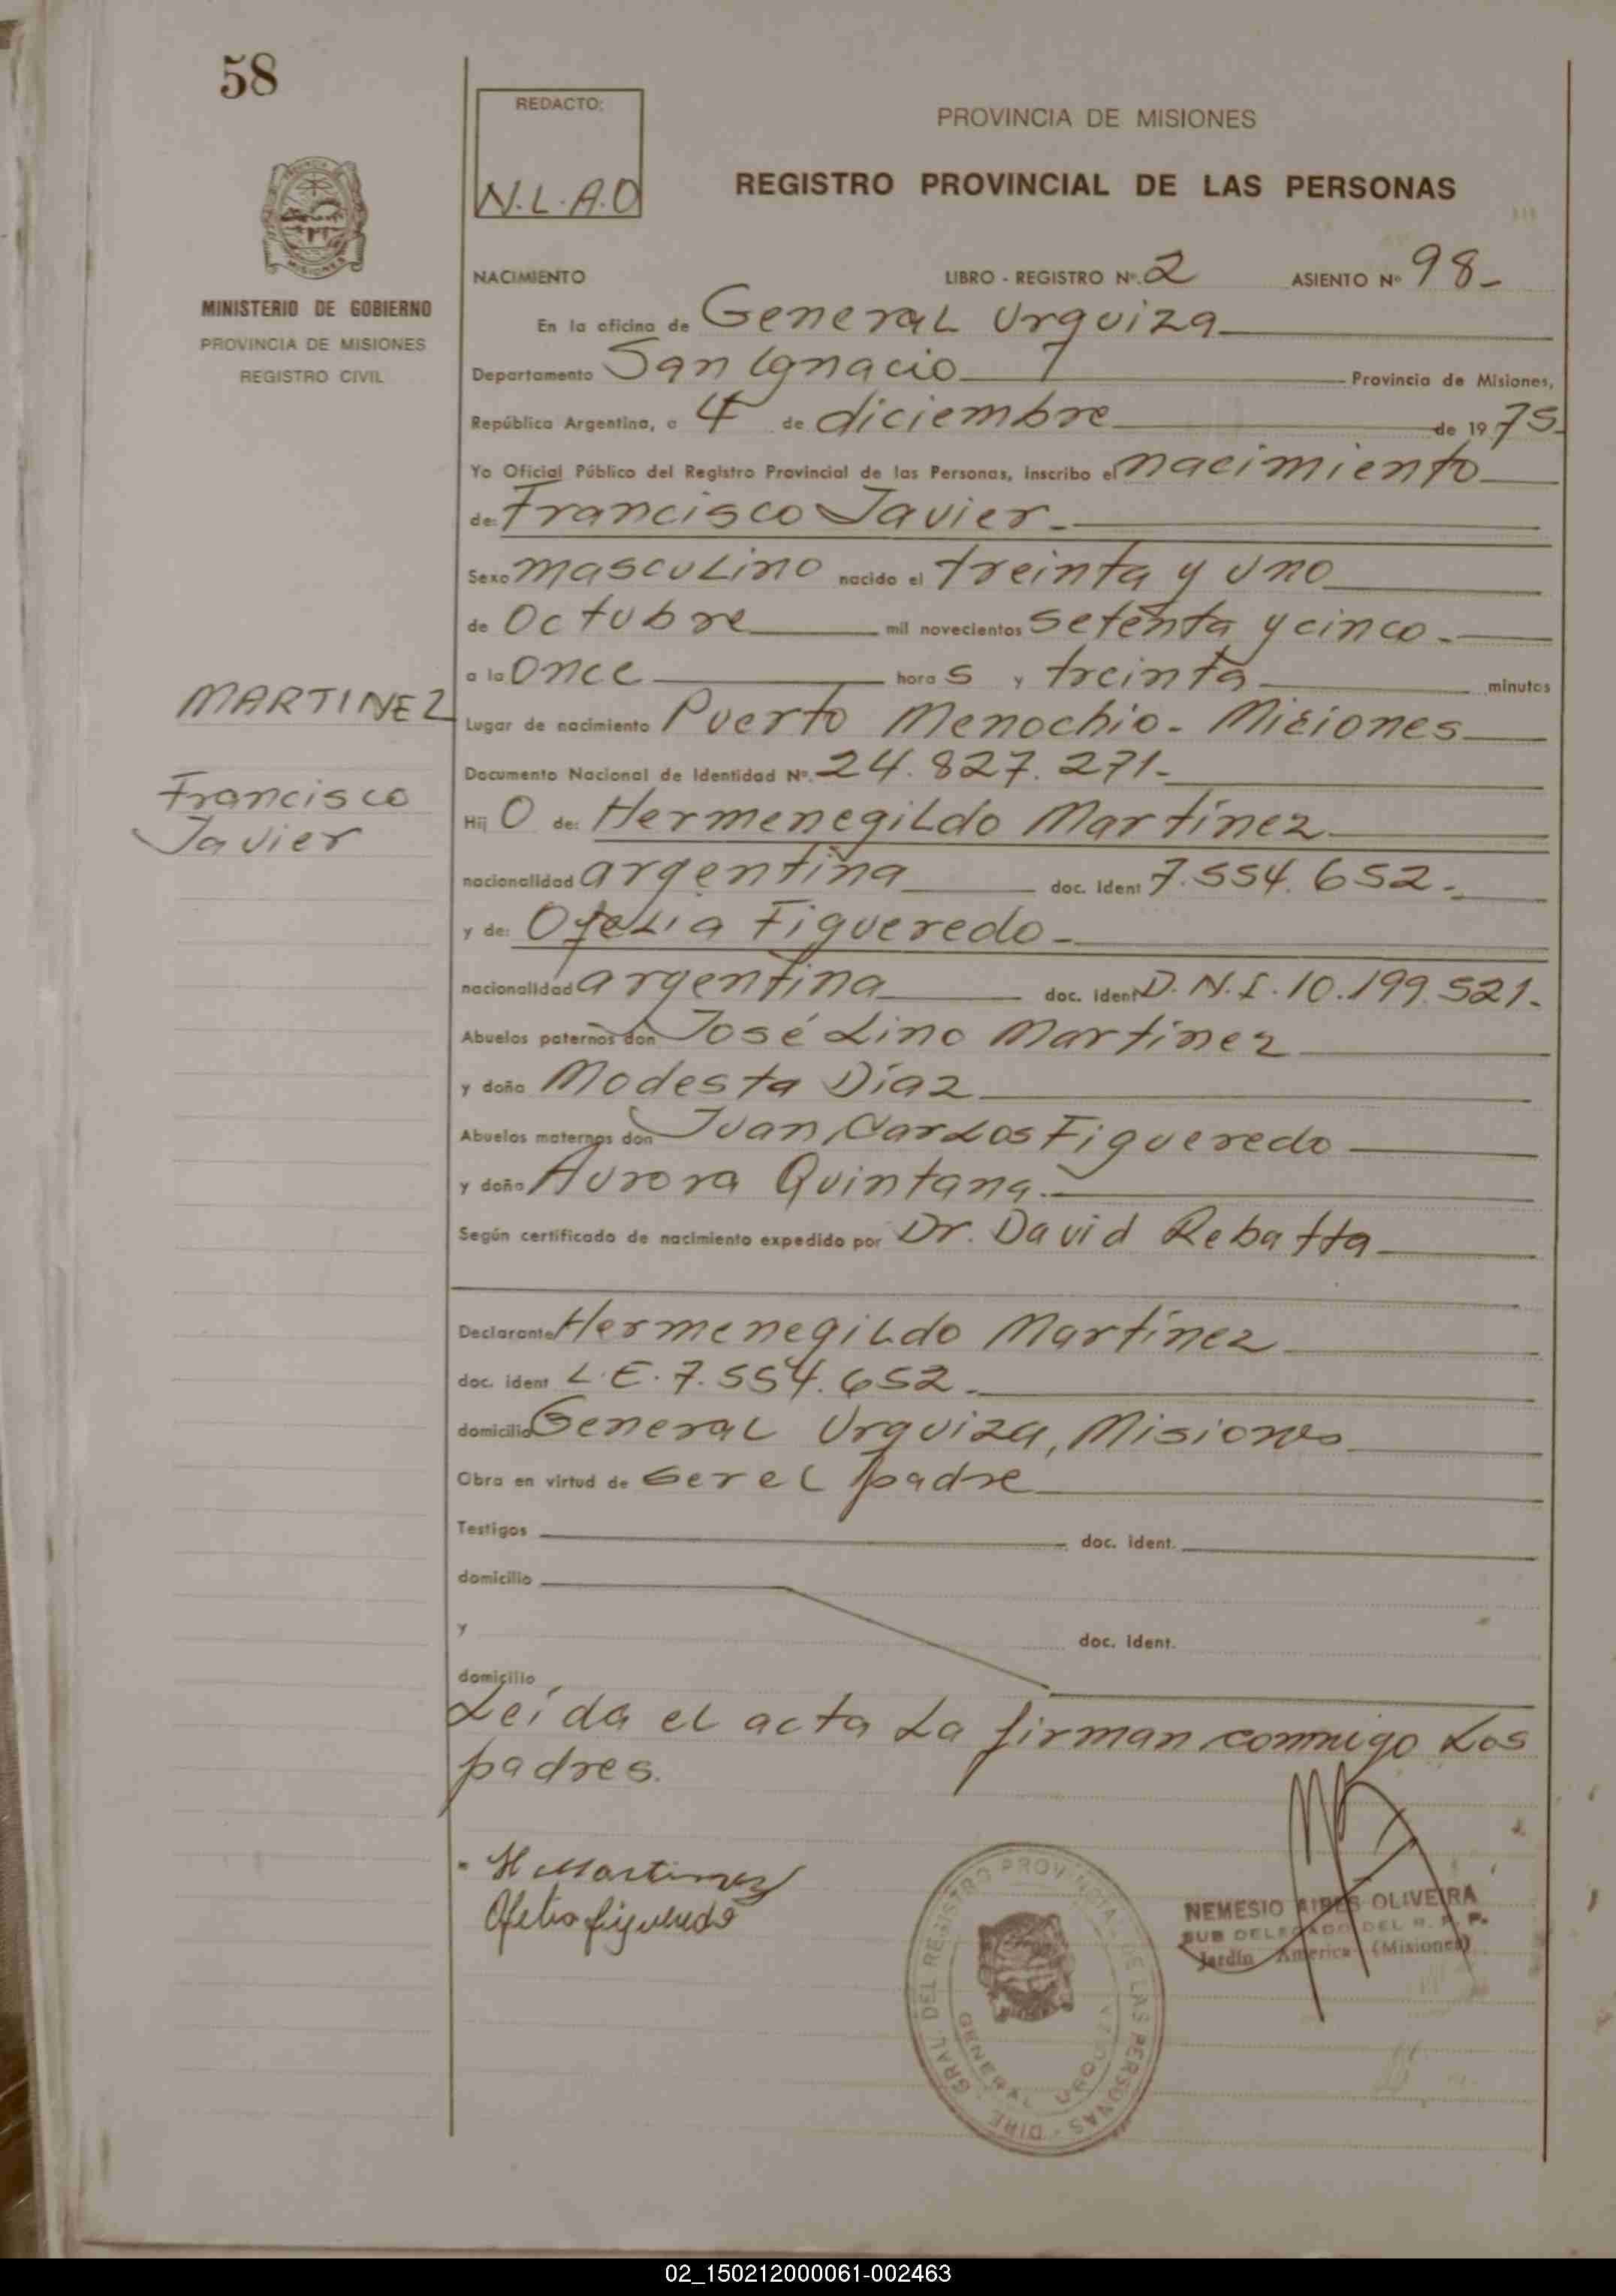 58
REDACTO:
N.L.A.O
PROVINCIA DE MISIONES
REGISTRO PROVINCIAL DE LAS PERSONAS
MISIONES
MINISTERIO DE GOBIERNO
PROVINCIA DE MISIONES
REGISTRO CIVIL
NACIMIENTO LIBRO - REGISTRO Nº. 2 ASIENTO Nº 98-
En la oficina de General Urquiza
Departamento San Ignacio Provincia de Misiones,
República Argentina, a 4 de diciembre de 19 75
Yo Oficial Público del Registro Provincial de las Personas, inscribo el nacimiento
de: Francisco Javier.-
Sexo masculino nacido el treinta y uno
de Octubre mil novecientos setenta y cinco.-
a la once hora s y treinta minutos
MARTINEZ
Francisco
Javier
Lugar de nacimiento Puerto Menochio - Misiones
Documento Nacional de Identidad Nº. 24.827.271-
Hij o de: Hermenegildo Martínez
nacionalidad argentina doc. ident 7.554.652.-
y de: Ofelia Figueredo -
nacionalidad argentina doc. ident D.N.I. 10.199.521.-
Abuelos paternos don José Lino Martínez
y doña Modesta Díaz
Abuelos maternos don Juan Carlos Figueredo
y doña Aurora Quintana.-
Según certificado de nacimiento expedido por Dr. David Rebatta
Declarante Hermenegildo Martínez
doc. ident L.E. 7.554.652.-
domicilio General Urquiza, Misiones
Obra en virtud de ser el padre
Testigos doc. ident.
domicilio
y doc. ident.
domicilio
Leída el acta la firman conmigo los
padres.
H Martinez
Ofelia figueredo
DIRE. GRAL. DEL REGISTRO PROVINCIAL DE LAS PERSONAS
GENERAL URQUIZA
NEMESIO AIRES OLIVEIRA
SUB DELEGADO DEL R. P. P.
Jardín America (Misiones)
02_150212000061-002463